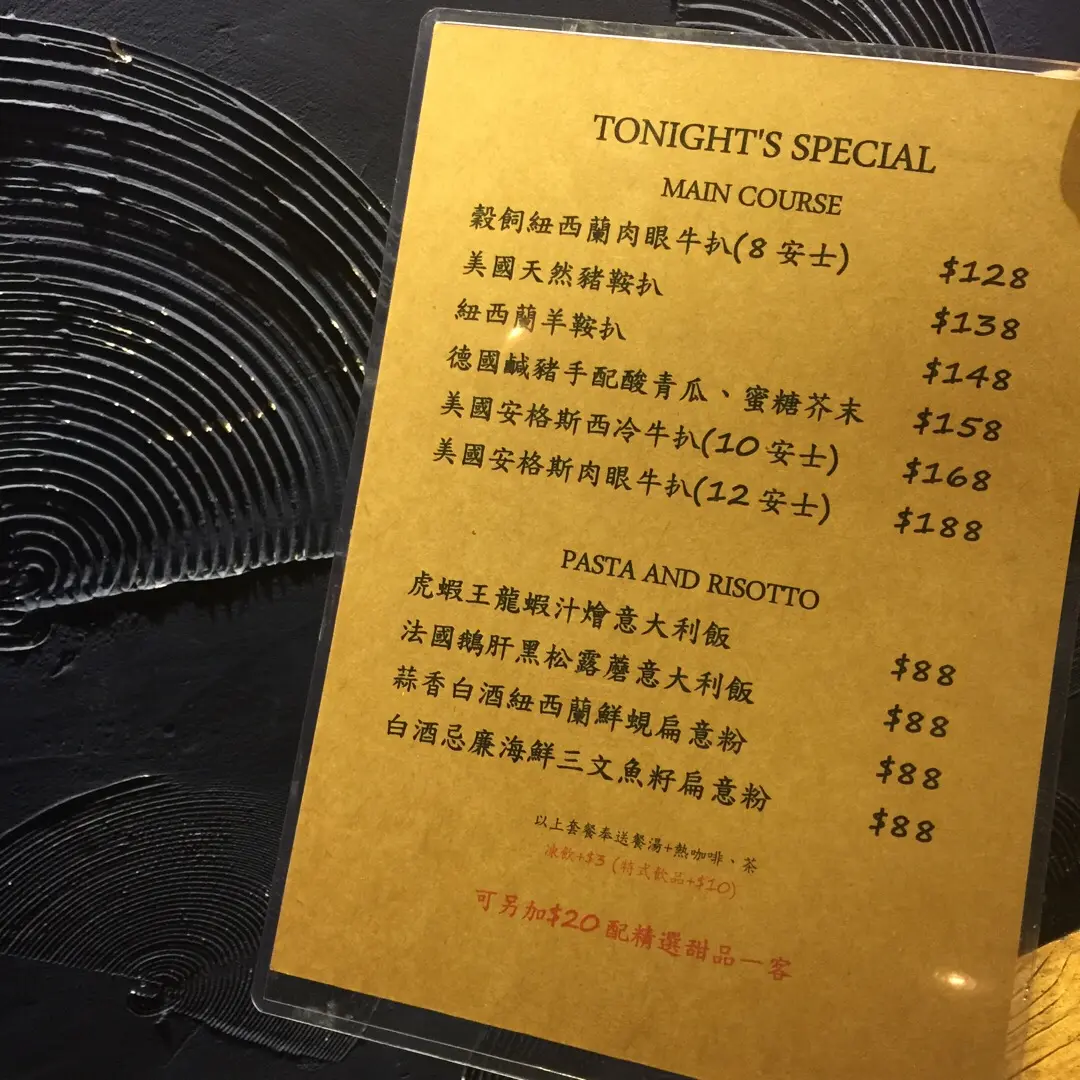 TONIGHT'S SPECIAL
MAIN COURSE
穀飼紐西蘭肉眼牛扒(8 安士) $128
美國天然豬鞍扒 $138
紐西蘭羊鞍扒 $148
德國鹹豬手配酸青瓜、蜜糖芥末 $158
美國安格斯西冷牛扒(10 安士) $168
美國安格斯肉眼牛扒(12 安士) $188
PASTA AND RISOTTO
虎蝦王龍蝦汁燴意大利飯 $88
法國鵝肝黑松露蘑意大利飯 $88
蒜香白酒紐西蘭鮮蜆扁意粉 $88
白酒忌廉海鮮三文魚籽扁意粉 $88
以上套餐奉送餐湯+熱咖啡、茶
冰飲+$3 (特式飲品+$10)
可另加$20 配精選甜品一客